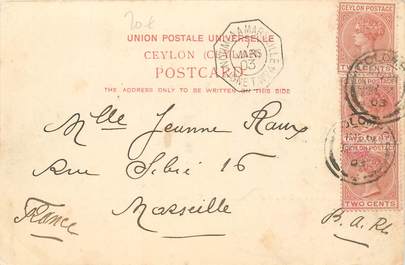 20€
UNION POSTALE UNIVERSELLE
CEYLON (CEYLAN)
POSTCARD
THE ADDRESS ONLY TO BE WRITTEN ON THIS SIDE
MARS
03
CEYLON POSTAGE
TWO CENTS
COLOMBO
03
CEYLON POSTAGE
TWO CENTS
COLOMBO
03
Mlle Jeanne Raux
Rue Sibié 16
Marseille
France
B. a. Rh